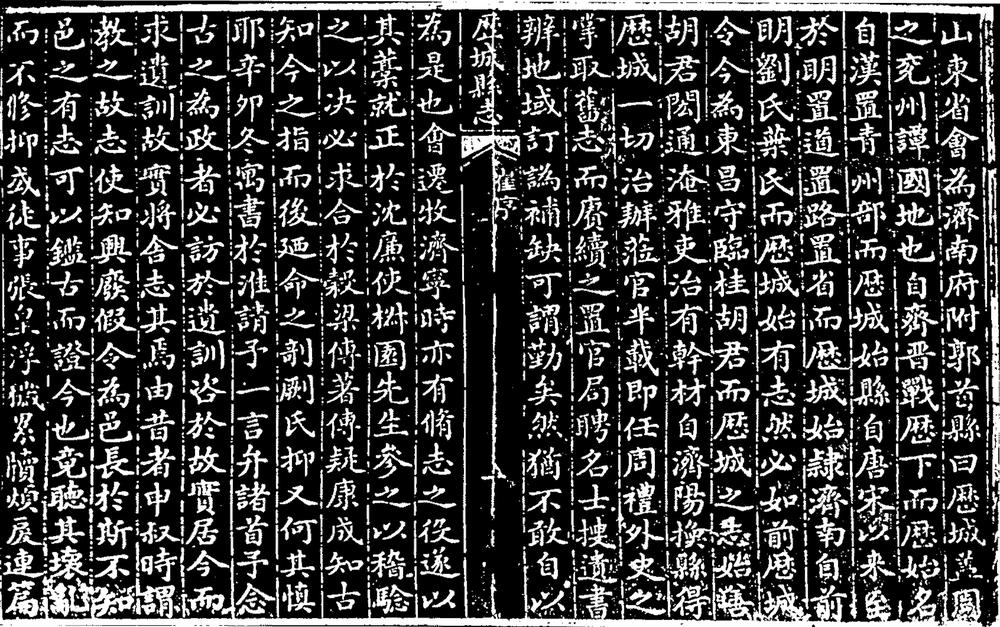 山東省會為濟南府附郭首縣曰歷城蓋周
之兖州譚國地也自齊晋戰歷下而歷始名
自漢置青州部而歷城始縣自唐宋以来至
於明置道置路置省而歷城始隷濟南自前
明劉氏葉氏而歷城始有志然必如前歷城
令今為東昌守臨桂胡君而歷城之志始
胡君閎通淹雅吏治有幹材自濟陽換縣得
歷城一切治辦蒞官半載即任周禮外史之
掌取舊志而賡續之置官局聘名士摟遺書
辨地域訂譌補缺可謂勤矣然猶不敢自以
歷城縣志
崔序
為是也會遷牧濟寧時亦有脩志之役遂以
其藁就正於沈廉使椒園先生参之以稽驗
之以决必求合於榖梁傳著傳疑康成知古
知今之指而後廼命之剞劂氏抑又何其慎
耶辛卯冬寓書於淮請予一言弁諸首予念
古之為政者必訪於遺訓咨於故實居今而
求遺訓故實將舍志其焉由昔者申叔時謂
教之故志使知興廢假令為邑長於斯不知
邑之有志可以鑑古而證今也竟聽其壞亂
而不修抑或徒事張皇浮穢累牘煩庋連篇